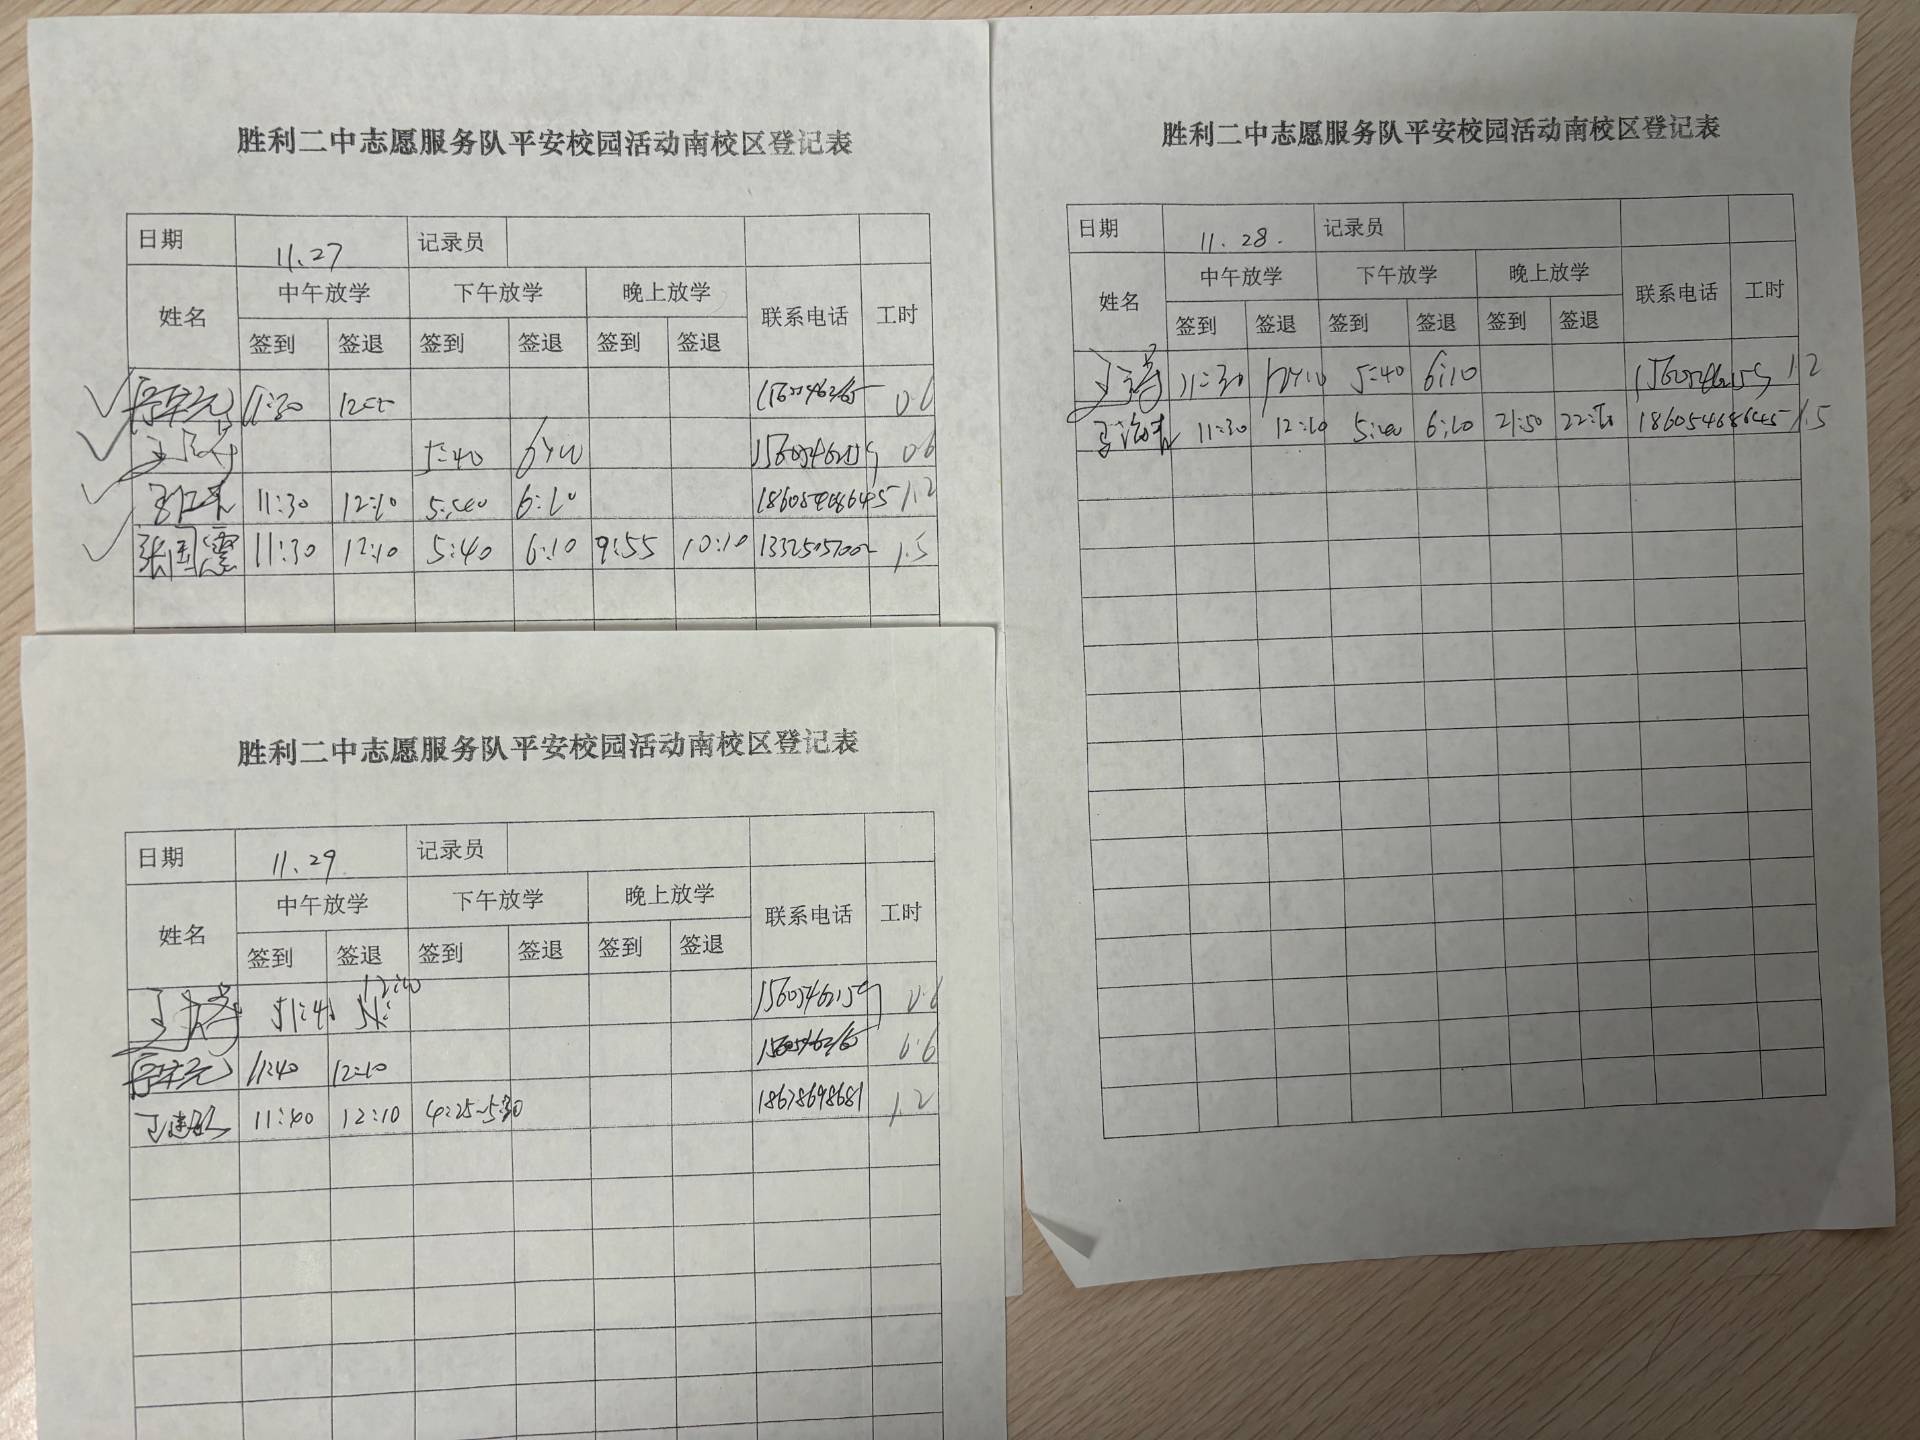 胜利二中志愿服务队平安校园活动南校区登记表
日期 11.27 记录员
姓名 中午放学 下午放学 晚上放学 联系电话 工时
签到 签退 签到 签退 签到 签退
11:30 0.6
5:40 0.6
11:30 12:10 5:40 6:10 18605468645 1.2
张国震 11:30 12:10 5:40 6:10 9:55 10:10 1.5
胜利二中志愿服务队平安校园活动南校区登记表
日期 11.28. 记录员
姓名 中午放学 下午放学 晚上放学 联系电话 工时
签到 签退 签到 签退 签到 签退
11:30 5:40 6:10 1.2
11:30 12:10 5:40 6:10 21:50 18605468645 1.5
胜利二中志愿服务队平安校园活动南校区登记表
日期 11.29 记录员
姓名 中午放学 下午放学 晚上放学 联系电话 工时
签到 签退 签到 签退 签到 签退
12:10 0.6
11:40 12:10 0.6
11:40 12:10 4:25~5:30 18678698681 1.2